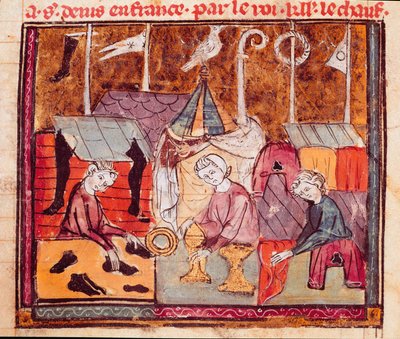 a. s'. denis en france. par le roi. le chauf.